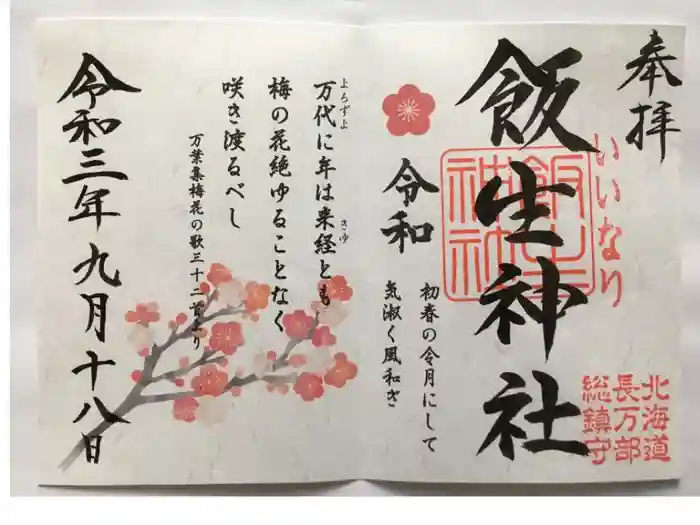 奉拝
いいなり
飯生神社
飯生神社
北海道
長万部
総鎮守
令和
初春の令月にして
気淑く風和ぎ
よろずよ
万代に年は来経とも
きゆ
梅の花絶ゆることなく
咲き渡るべし
万葉集梅花の歌三十二首より
令和三年九月十八日